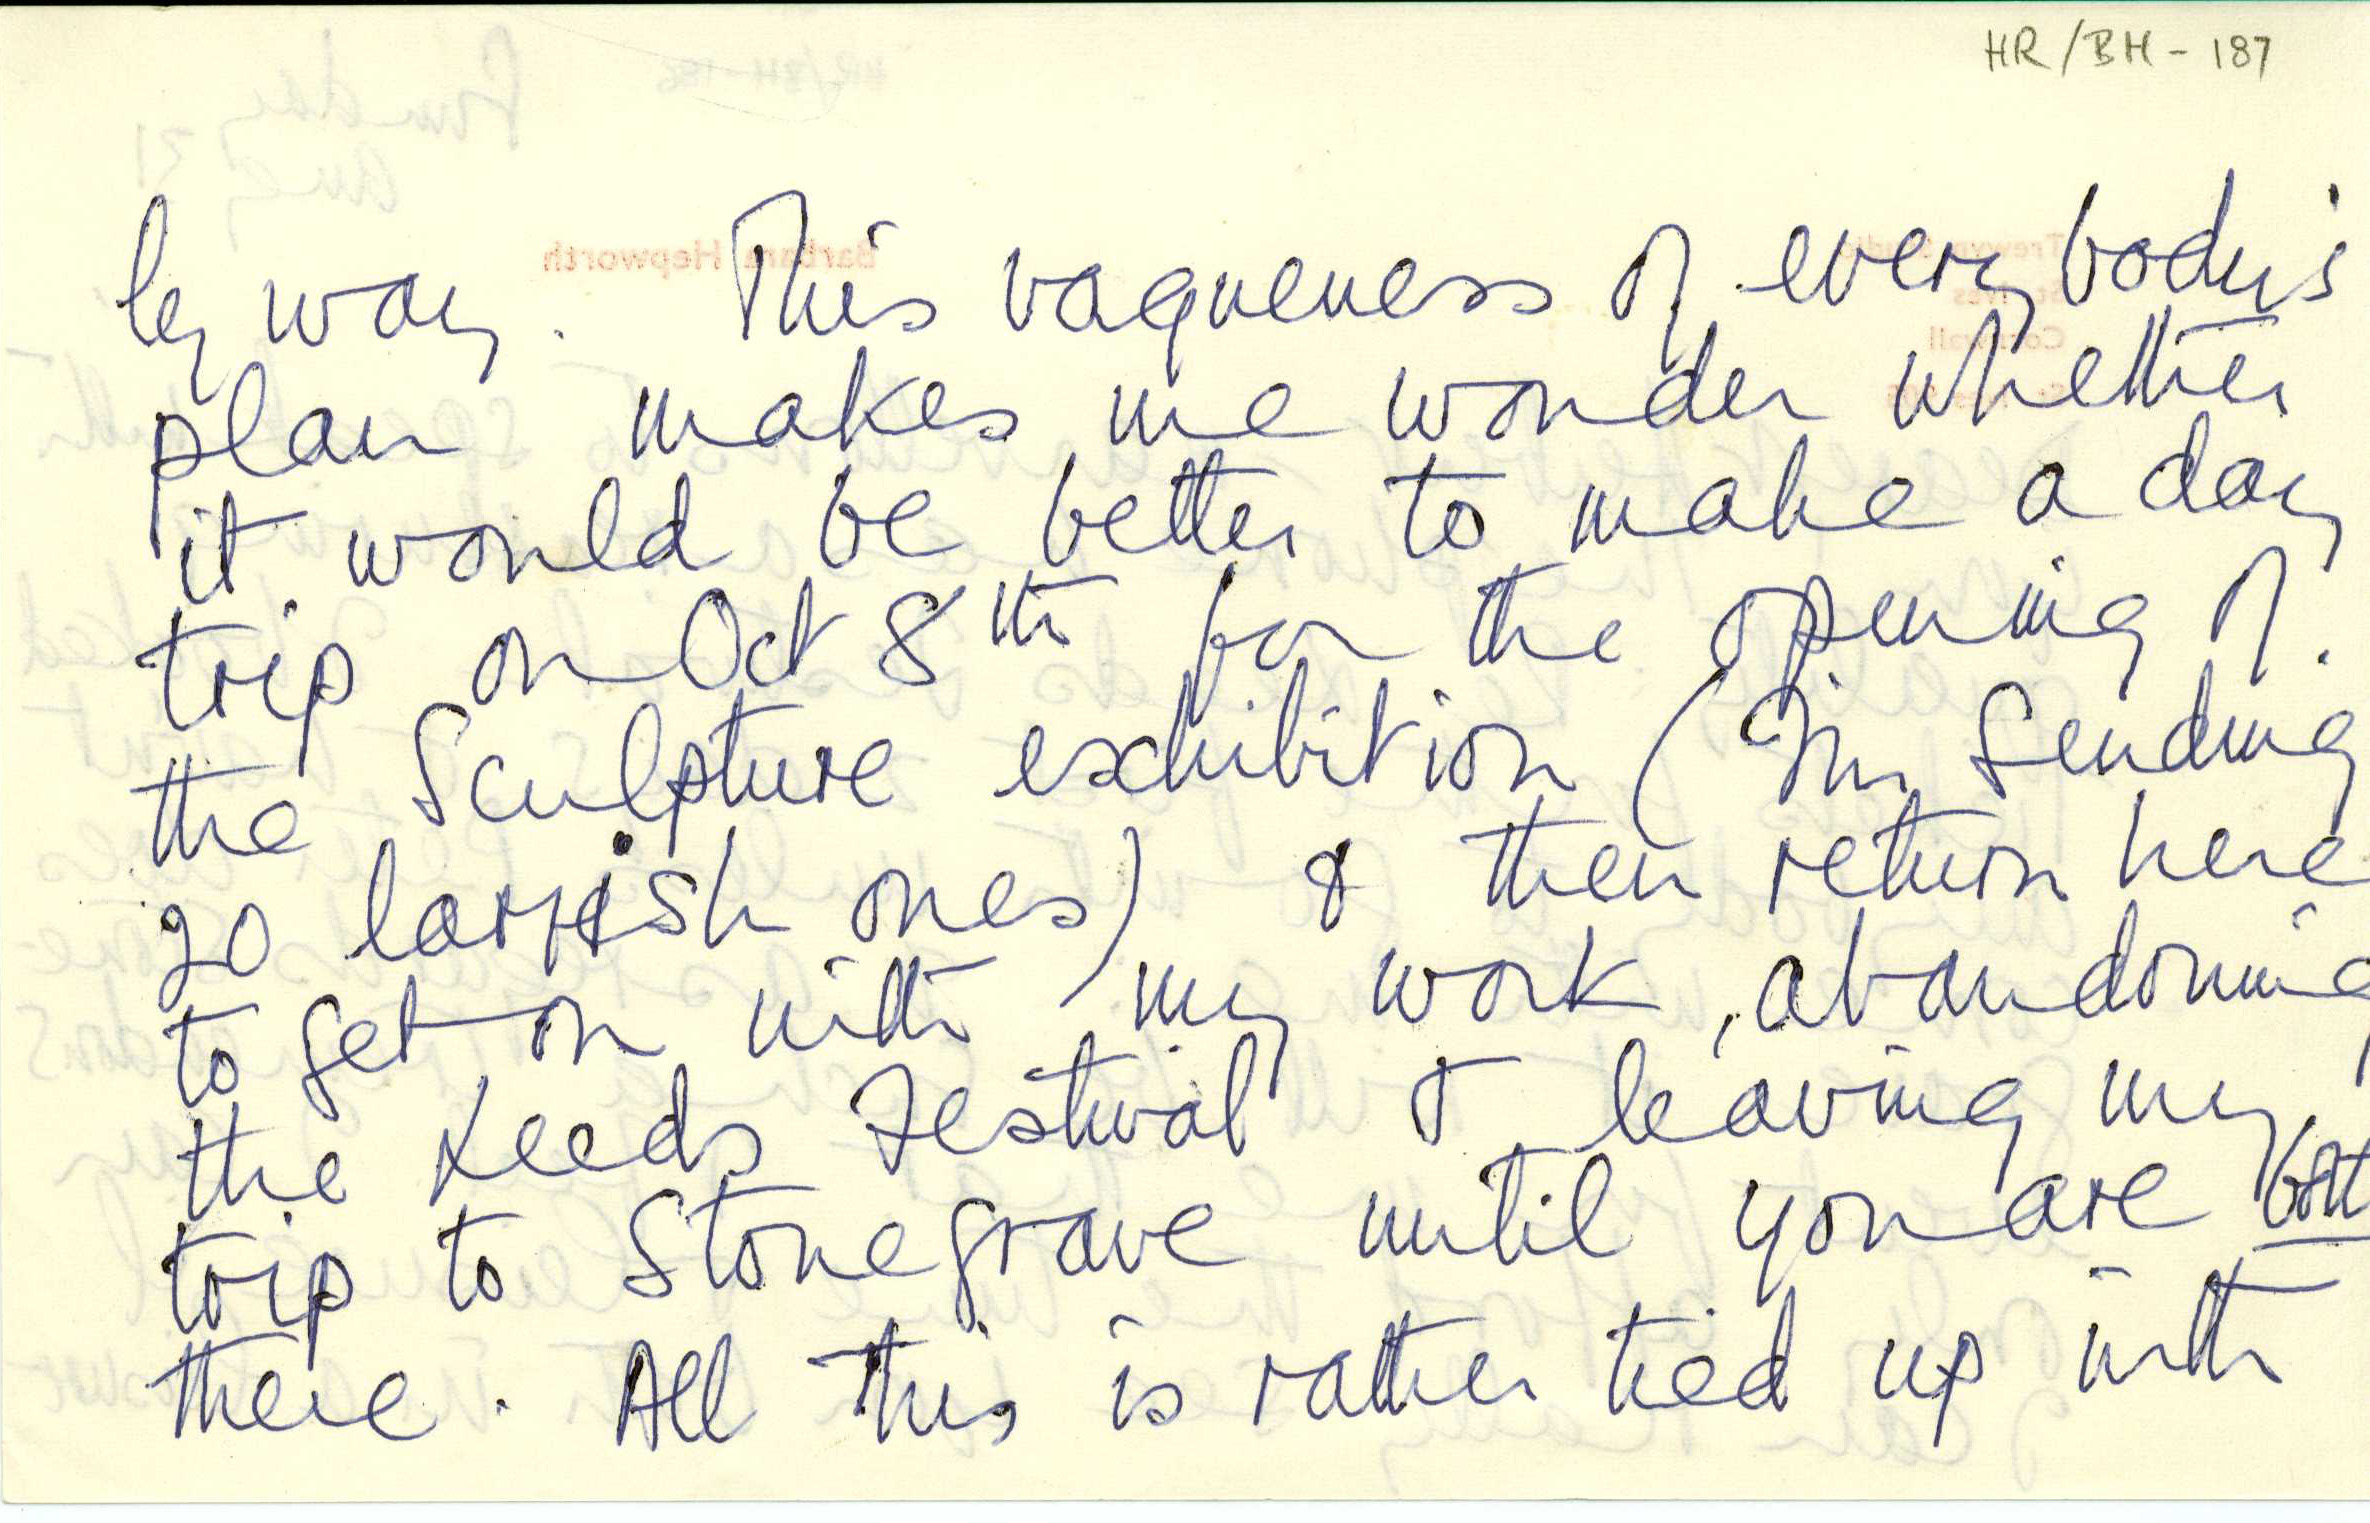 HR/BH - 187
by way. This vagueness of everybody's
plan makes me wonder whether
it would be better to make a day
trip on Oct 8th for the opening of
the Sculpture exhibition (I'm sending
20 largish ones) & then return here
to get on with my work, abandoning
the Leeds Festival & leaving my
trip to Stonegrave until you are both
there. All this is rather tied up with
Barbara Hepworth
Trewyn Studio
St Ives
Cornwall
Sunday
Aug 21